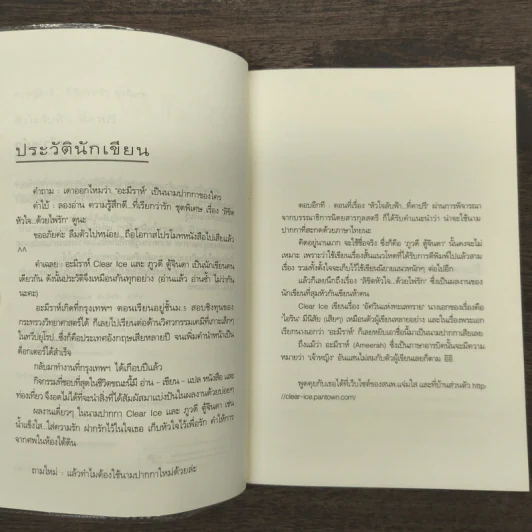 ประวัตินักเขียน
คำถาม : เดาออกไหมว่า 'อะมีราห์' เป็นนามปากกาของใคร
คำใบ้ : ลองอ่าน ความรู้สึกดี...ที่เรียกว่ารัก ชุดพิเศษ เรื่อง 'ลิขิต
หัวใจ...ด้วยไฟรัก' ดูนะ
ขออภัยค่ะ ลืมตัวไปหน่อย...ถือโอกาสโปรโมทหนังสือไปเสียแล้ว
^^
คำเฉลย : อะมีราห์ Clear Ice และ ภูวดี ตู้จินดา เป็นนักเขียนคน
เดียวกัน ดังนั้นประวัติจึงเหมือนกันทุกอย่าง (อ่านแล้ว อ่านซ้ำ ไม่ว่ากัน
นะคะ)
อะมีราห์เกิดที่กรุงเทพฯ ตอนเรียนอยู่ชั้นม.5 สอบชิงทุนของ
กระทรวงวิทยาศาสตร์ได้ ก็เลยไปเรียนต่อด้านวิศวกรรมเคมีที่เกาะเล็กๆ
ในทวีปยุโรป...ซึ่งก็คือประเทศอังกฤษเสียหลายปี จนเพิ่มคำนำหน้าเป็น
ด็อกเตอร์ได้สำเร็จ
กลับมาทำงานที่กรุงเทพฯ ได้เกือบปีแล้ว
กิจกรรมที่ชอบที่สุดในชีวิตขณะนี้มี อ่าน - เขียน - แปล หนังสือ และ
ท่องเที่ยว จึงอดไม่ได้ที่จะนำสิ่งที่ได้สัมผัสมาแบ่งปันในผลงานด้วยบ่อยๆ
ผลงานเดี่ยวๆ ในนามปากกา Clear Ice และ ภูวดี ตู้จินดา เช่น
น้ำแข็งใส..ใส่ความรัก ฝากรักไว้ในใจเธอ เก็บหัวใจไว้เพื่อรัก คำให้การ
จากศพในห้องใต้ดิน
ถามใหม่ : แล้วทำไมต้องใช้นามปากกาใหม่ด้วยล่ะ
ตอบอีกที : ตอนที่เรื่อง 'หัวใจลับฟ้า...ที่คาปรี' ผ่านการพิจารณา
จากบรรณาธิการนิตยสารกุลสตรี ก็ได้รับคำแนะนำว่า น่าจะใช้นาม
ปากกาที่สะกดด้วยภาษาไทยนะ
คิดอยู่นานมาก จะใช้ชื่อจริง ซึ่งก็คือ 'ภูวดี ตู้จินดา' นั้นคงจะไม่
เหมาะ เพราะว่าใช้เขียนเรื่องสั้นแนวโหดที่ได้รับการตีพิมพ์ไปแล้วสาม
เรื่อง รวมทั้งตั้งใจจะเก็บไว้ใช้เขียนนิยายแนวหนักๆ ต่อไปอีก
แล้วก็เลยนึกถึงเรื่อง 'ลิขิตหัวใจ...ด้วยไฟรัก' ซึ่งเป็นผลงานของ
นักเขียนที่สุมหัวกันเขียนห้าคน
Clear Ice เขียนเรื่อง 'อัศวินแห่งทะเลทราย' นางเอกของเรื่องคือ
'ไอริน' มีนิสัย (เสียๆ) เหมือนตัวผู้เขียนหลายอย่าง และในเรื่องพระเอก
เรียกนางเอกว่า 'อะมีราห์' ก็เลยหยิบเอาชื่อนี้มาเป็นนามปากกาเสียเลย
ถึงแม้ว่า อะมีราห์ (Ameerah) ซึ่งเป็นภาษาอารบิคนั้นจะมีความ
หมายว่า 'เจ้าหญิง' อันแสนไม่สมกับตัวผู้เขียนเลยก็ตาม อิอิ
พูดคุยกับเธอได้ที่เว็บไซต์ของสนพ.แจ่มใส และที่บ้านส่วนตัว http:
//clear-ice.pantown.com/